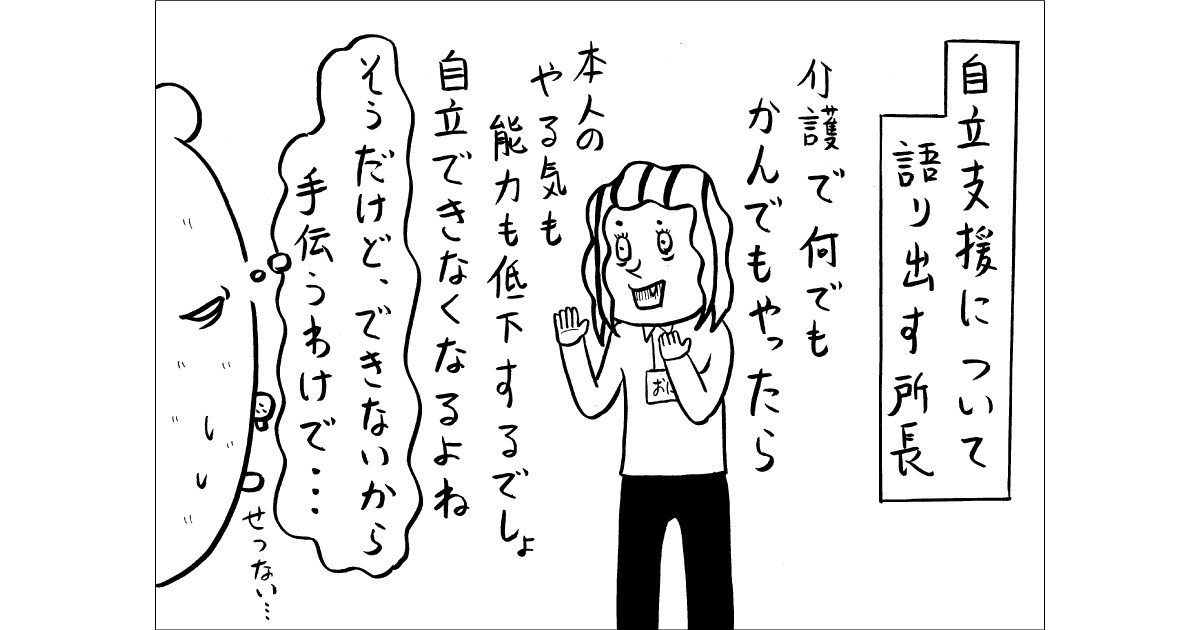 自立支援について
語り出す所長
介護で何でも
かんでもやったら
本人の
やる気も
能力も低下するでしょ
自立できなくなるよね
そうだけど、できないから
手伝うわけで…
せつない…